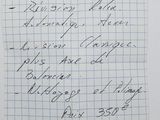 - Révision Rolex
Automatique Acier
- Révision Classique
plus Axe de
Balancier
- Nettoyage et Polissage
Prix 350 €